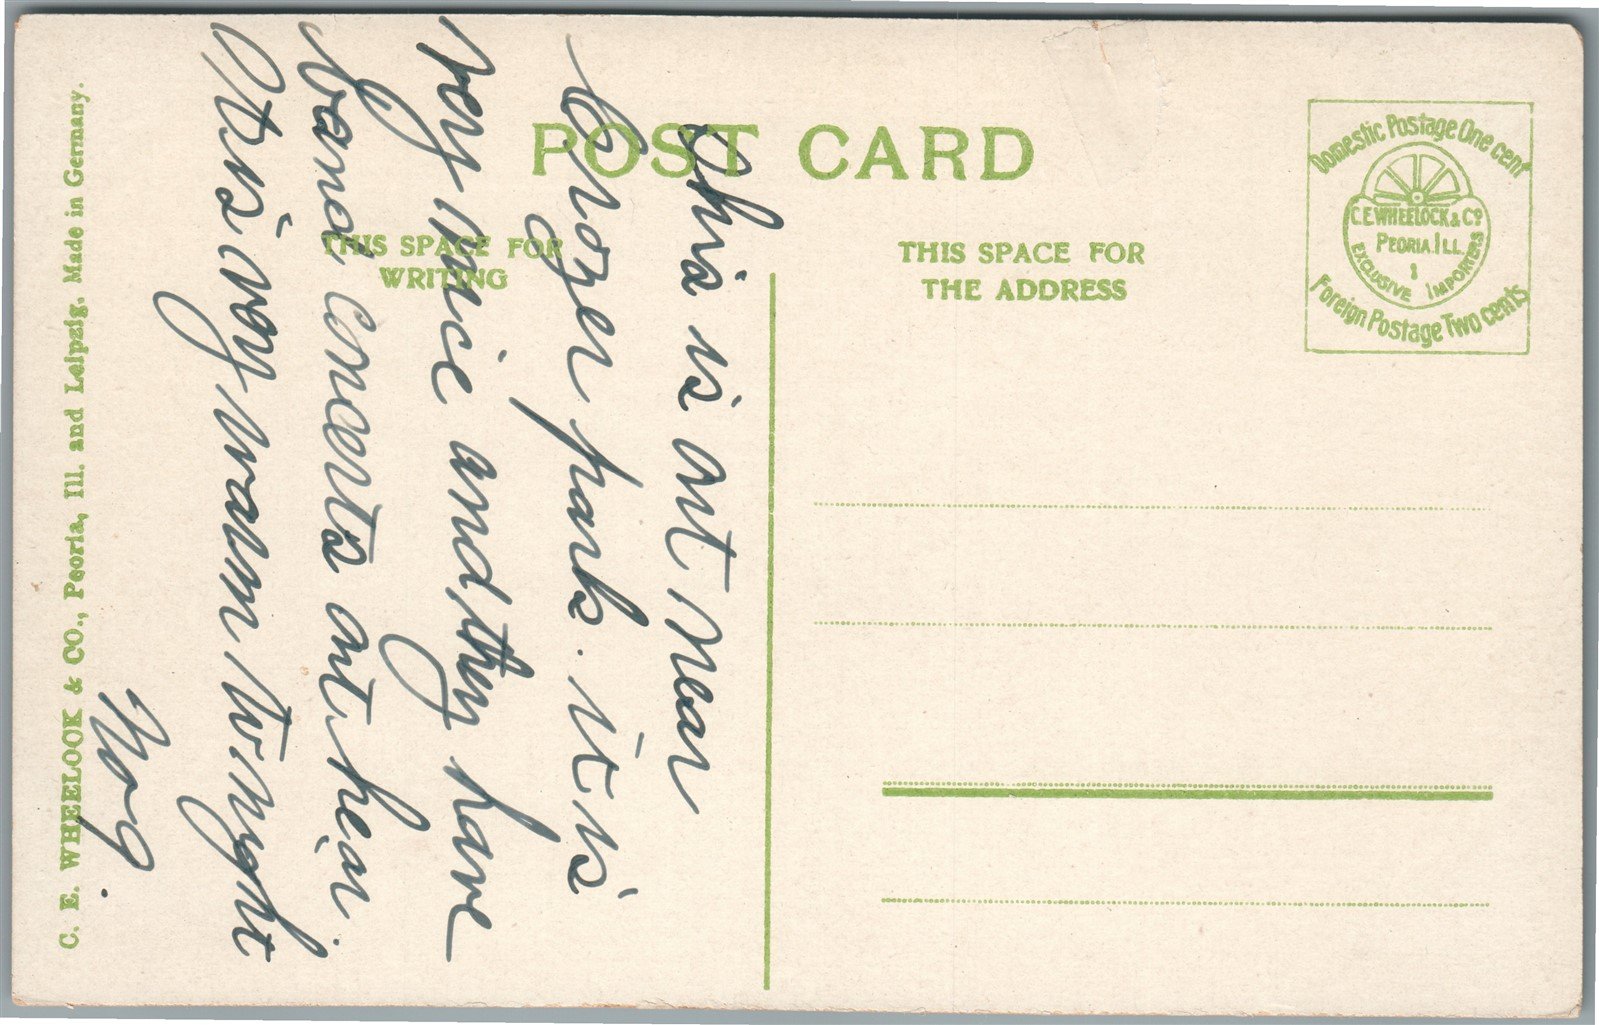 POST CARD
THIS SPACE FOR
WRITING
THIS SPACE FOR
THE ADDRESS
Domestic Postage One cent
C.E. WHEELOCK & CO
PEORIA ILL.
EXCLUSIVE IMPORTERS
Foreign Postage Two cents
This is out near
park. it is
very nice and they have
band concerts out hear.
it is very warm to night
C. E. WHEELOCK & CO., Peoria, Ill. and Leipzig. Made in Germany.